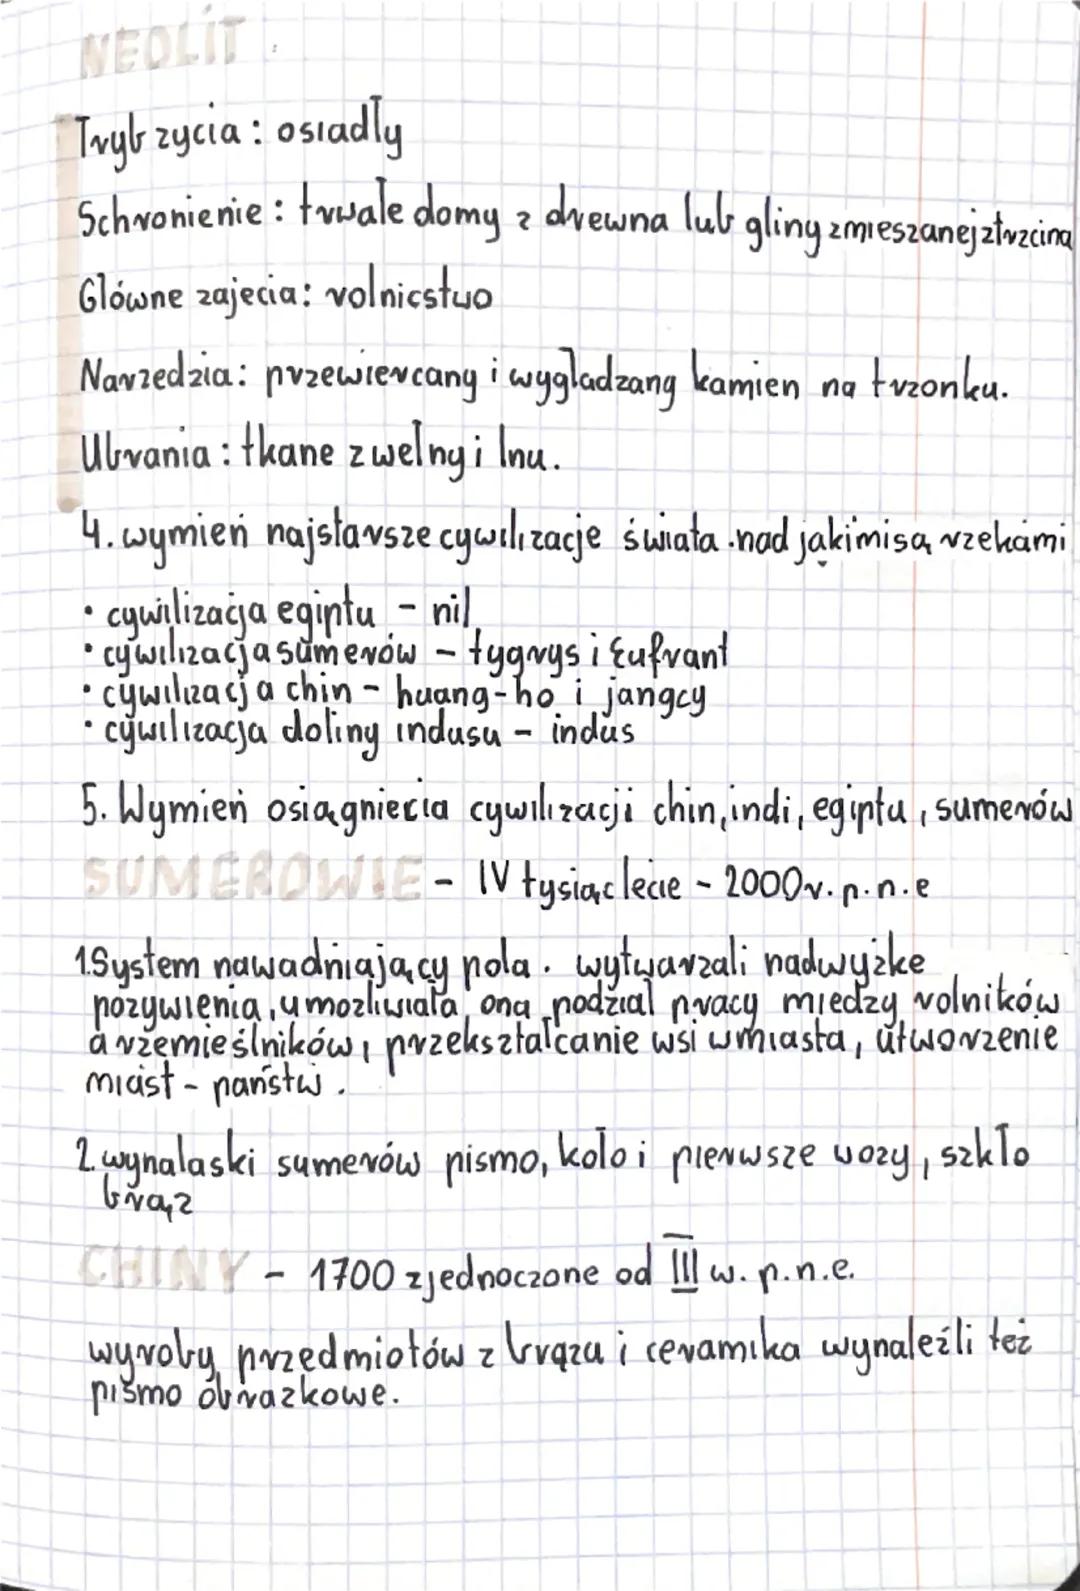 NEOLIT.
Tryb zycia: osiadły
Schronienie: trwałe domy z drewna lub gliny zmieszanej z trzcina
Główne zajecia: rolnicstwo
Narzedzia: przewiercany i wygładzany kamien na trzonku.
Ubrania: tkane z wełny i lnu.
4. wymień najstarsze cywilizacje świata. nad jakimi są rzekami
• cywilizacja egiptu - nil
• cywilizacja sumerów - tygrys i Eufrant
• cywilizacja chin - huang-ho i jangcy
• cywilizacja doliny indusu - indus
5. Wymień osiągniecia cywilizacji chin, indi, egiptu, sumerów
SUMEROWIE - IV tysiąclecie - 2000r. p.n.e
1. System nawadniający pola. wytwarzali nadwyżke
pozywienia, umozliwiała ona podział pracy miedzy rolników
a rzemieślników, przekształcanie wsi w miasta, utworzenie
miast - państw.
2. wynalaski sumerów pismo, koło i pierwsze wozy, szkło
brąz
CHINY - 1700 zjednoczone od III w. p.n.e.
wyroby przedmiotów z brązu i ceramika wynaleźli też
pismo obrazkowe.